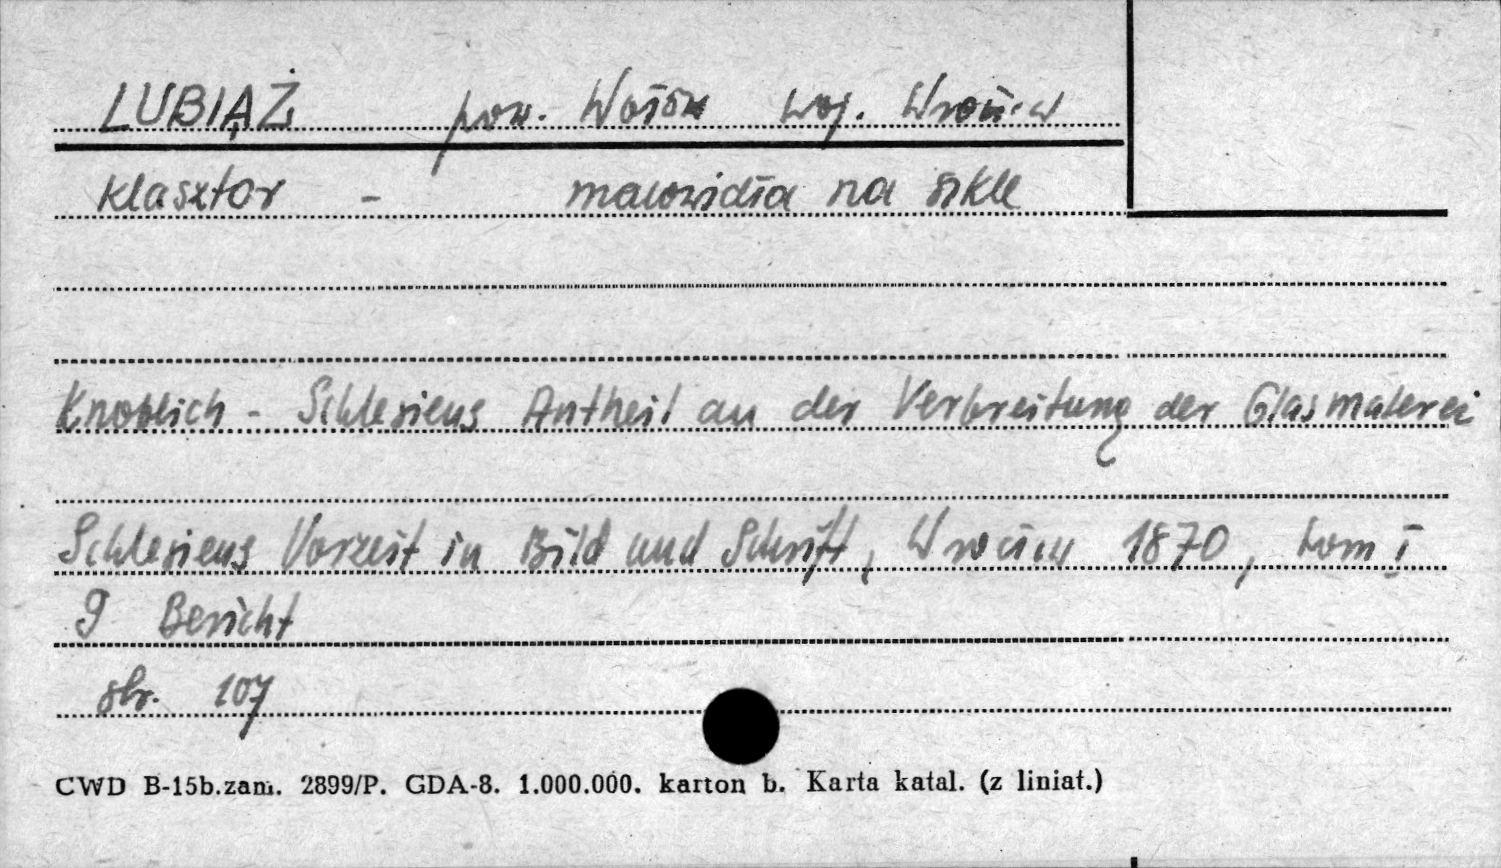 LUBIĄŻ pow. Wołów woj. Wrocław
Klasztor - malowidła na szkle
Knoblich - Schlesiens Antheil an der Verbreitung der Glasmalerei
Schlesiens Vorzeit in Bild und Schrift, Wrocław 1870, tom I
9 Bericht
str. 107
CWD B-15b.zam. 2899/P. GDA-8. 1.000.000. karton b. Karta katal. (z liniat.)